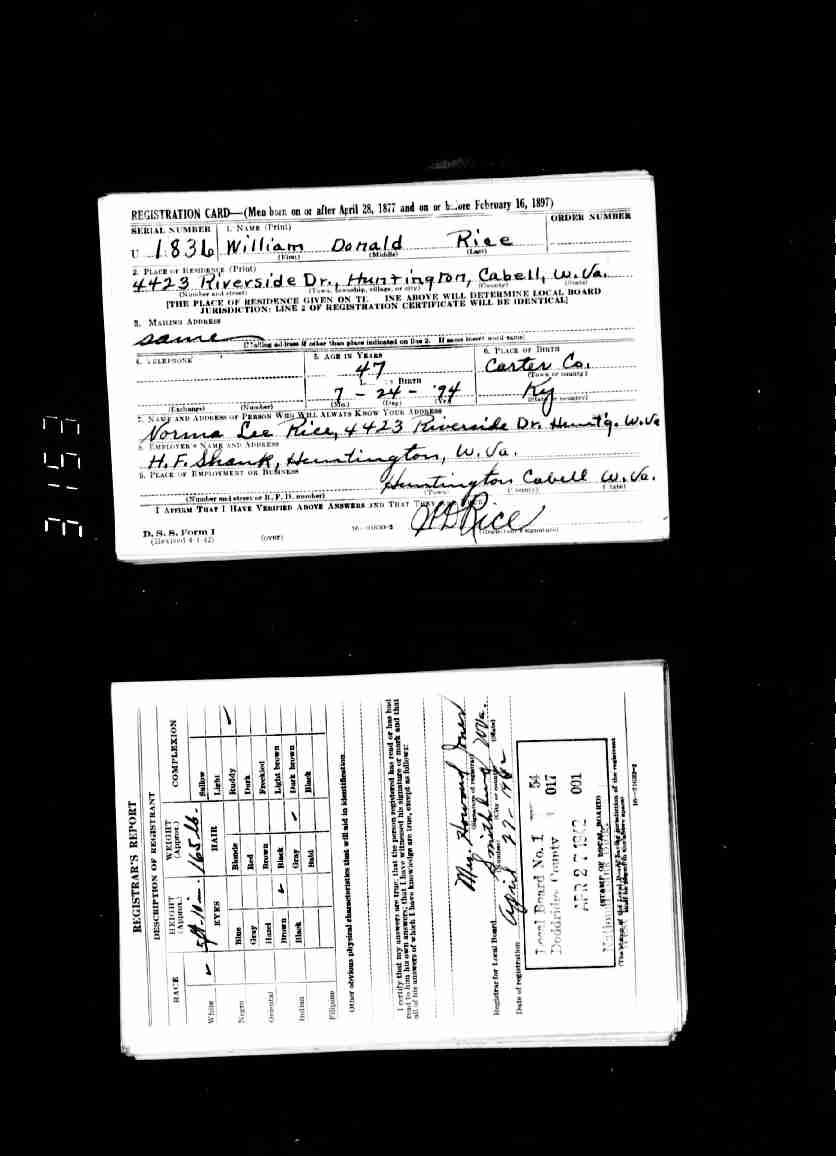 REGISTRATION CARD—(Men born on or after April 28, 1877 and on or before February 16, 1897)
SERIAL NUMBER 1. NAME (Print) ORDER NUMBER
U 1836 William Donald Rice
(First) (Middle) (Last)
2. PLACE OF RESIDENCE (Print)
4423 Riverside Dr., Huntington, Cabell, W. Va.
(Number and street) (Town, township, village, or city) (County) (State)
[THE PLACE OF RESIDENCE GIVEN ON THE LINE ABOVE WILL DETERMINE LOCAL BOARD
JURISDICTION; LINE 2 OF REGISTRATION CERTIFICATE WILL BE IDENTICAL]
3. MAILING ADDRESS
same
[Mailing address if other than place indicated on line 2. If same insert word same]
4. TELEPHONE 5. AGE IN YEARS 6. PLACE OF BIRTH
47 Carter Co.
BIRTH (Town or county)
7 - 24 - '94 Ky
(Exchange) (Number) (Mo.) (Day) (Yr.) (State or country)
7. NAME AND ADDRESS OF PERSON WHO WILL ALWAYS KNOW YOUR ADDRESS
Norma Lee Rice, 4423 Riverside Dr. Hunt'g. W. Va
8. EMPLOYER'S NAME AND ADDRESS
H. F. Shank, Huntington, W. Va.
9. PLACE OF EMPLOYMENT OR BUSINESS
Huntington Cabell W. Va.
(Number and street or R. F. D. number) (Town) (County) (State)
I AFFIRM THAT I HAVE VERIFIED ABOVE ANSWERS AND THAT THEY
W D Rice
D. S. S. Form 1
(Revised 4-1-42) (over) 16—21630-2 (Registrant's signature)
REGISTRAR'S REPORT
DESCRIPTION OF REGISTRANT
RACE HEIGHT (Approx.) WEIGHT (Approx.) COMPLEXION
White 5ft-10in. 165 lb. Sallow
EYES HAIR Light
Negro Blue Blonde Ruddy
Gray Red Dark
Oriental Hazel Brown Freckled
Brown Black Light brown
Indian Black Gray Dark brown
Bald Black
Filipino
Other obvious physical characteristics that will aid in identification
I certify that my answers are true; that the person registered has read or has had
read to him his own answers; that I have witnessed his signature or mark and that
all of his answers of which I have knowledge are true, except as follows:
Mrs. Howard Jones
(Signature of registrar)
Registrar for Local Board Smithburg W Va.
(Number) (City or county) (State)
Date of registration April 27-1942
Local Board No. 1 54
Doddridge County 017
APR 27 1942 001
(STAMP OF LOCAL BOARD)
(The stamp of the Local Board having jurisdiction of the registrant
shall be placed in the above space)
16—21630-2